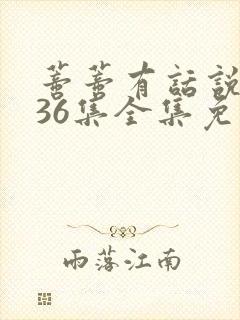 蔷蔷有話說
36集全集免
雨落江南